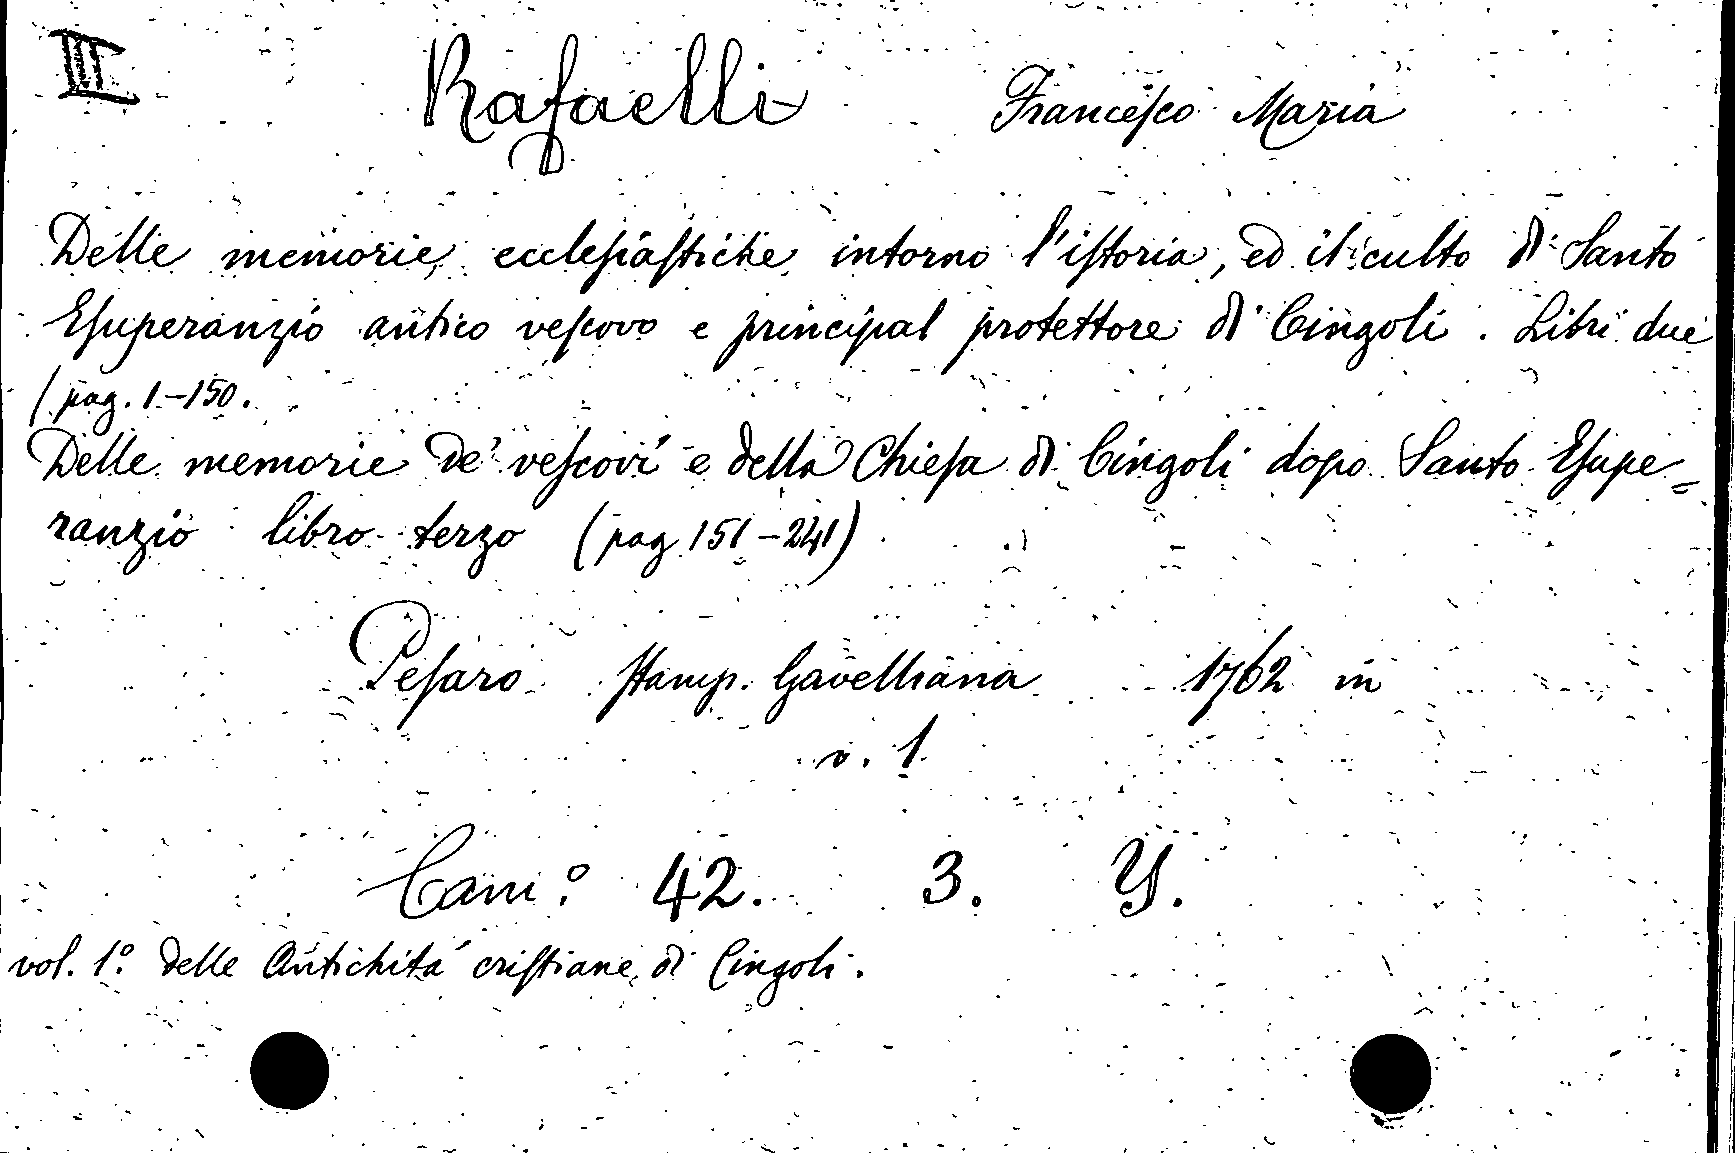 III Rafaelli Francesco Maria
Delle memorie ecclesiastiche intorno l'istoria, ed il culto di Santo
Esuperanzio antico vescovo e principal protettore di Cingoli. Libri due
(pag. 1-150.
Delle memorie de' vescovi e della Chiesa di Cingoli dopo Santo Esupe=
ranzio libro terzo (pag 151-241)
Pesaro stamp. Gavelliana 1762 in
v. 1
Cam:° 42. 3. Y.
vol. 1° delle Antichità cristiane di Cingoli.